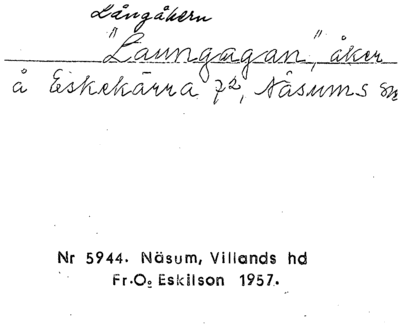 Långåkern
"Laungagan", åker
å Eskekärra 7², Näsums sn
Nr 5944. Näsum, Villands hd
Fr.O. Eskilson 1957.